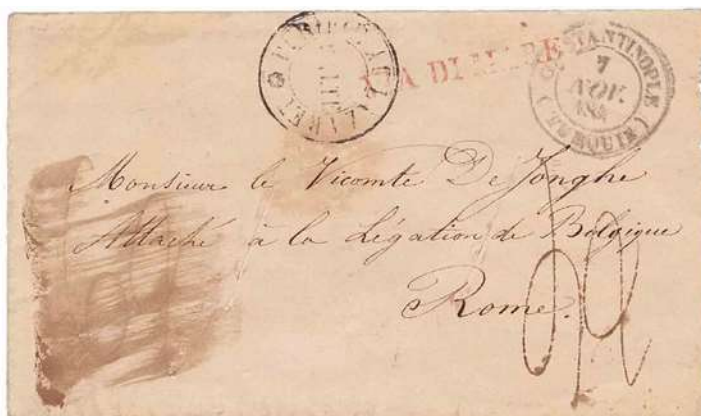 VIA DI MARE
CONSTANTINOPLE
7
NOV.
184
(TURQUIE)
Monsieur le Vicomte De Jonghe
Attaché à la Légation de Belgique
Rome.